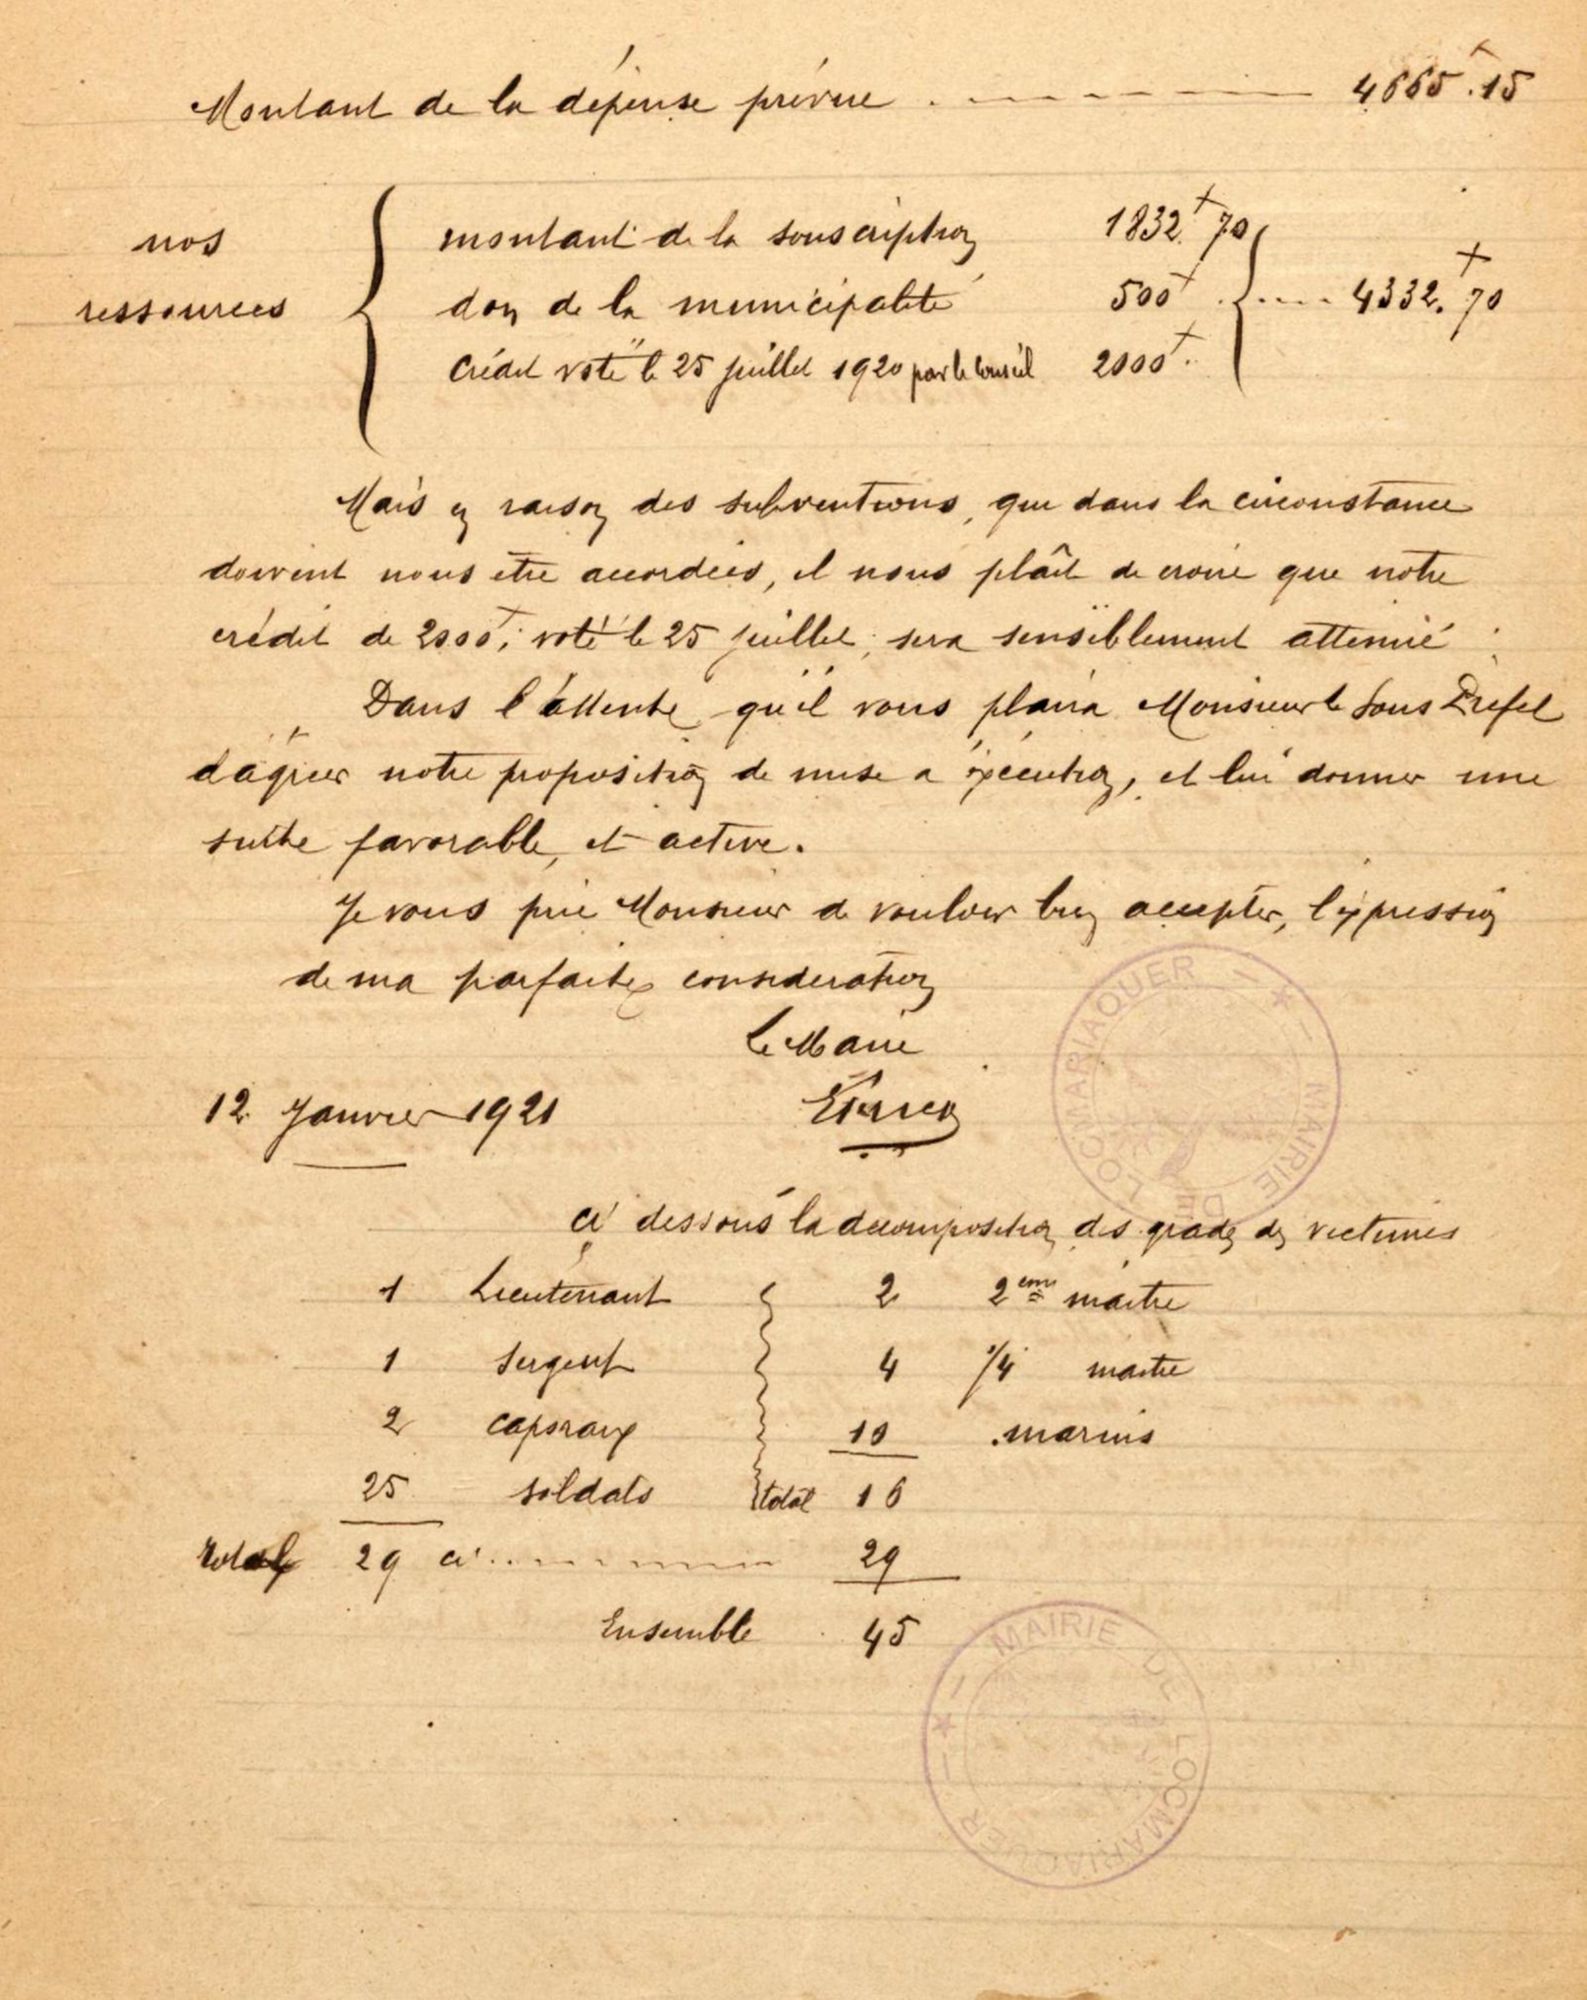 Montant de la dépense prévue . — — — — — 4665f.15
nos ressources
montant de la souscription 1832f.70
don de la municipalité 500f . .... 4332f.70
Crédit voté le 25 juillet 1920 par le Conseil 2000f.
Mais en raison des subventions, que dans la circonstance
doivent nous être accordées, il nous plâit de croire que notre
crédit de 2000f, voté le 25 juillet, sera sensiblement attenué.
Dans l'attente qu'il vous plaira Monsieur le Sous Préfet
d'agréer notre proposition de mise a éxécution, et lui donner une
suite favorable, et active.
Je vous prie Monsieur de vouloir bien accepter, l'expression
de ma parfaite consideration
Le Maire
12 Janvier 1921
MAIRIE DE LOCMARIAQUER
ci dessous la décomposition des grades des victimes
1 Lieutenant 2 2eme maitre
1 Sergent 4 1/4 maitre
2 Caporaux 10 marins
25 soldats total 16
total 29 ci........ 29
Ensemble 45
MAIRIE DE LOCMARIAQUER